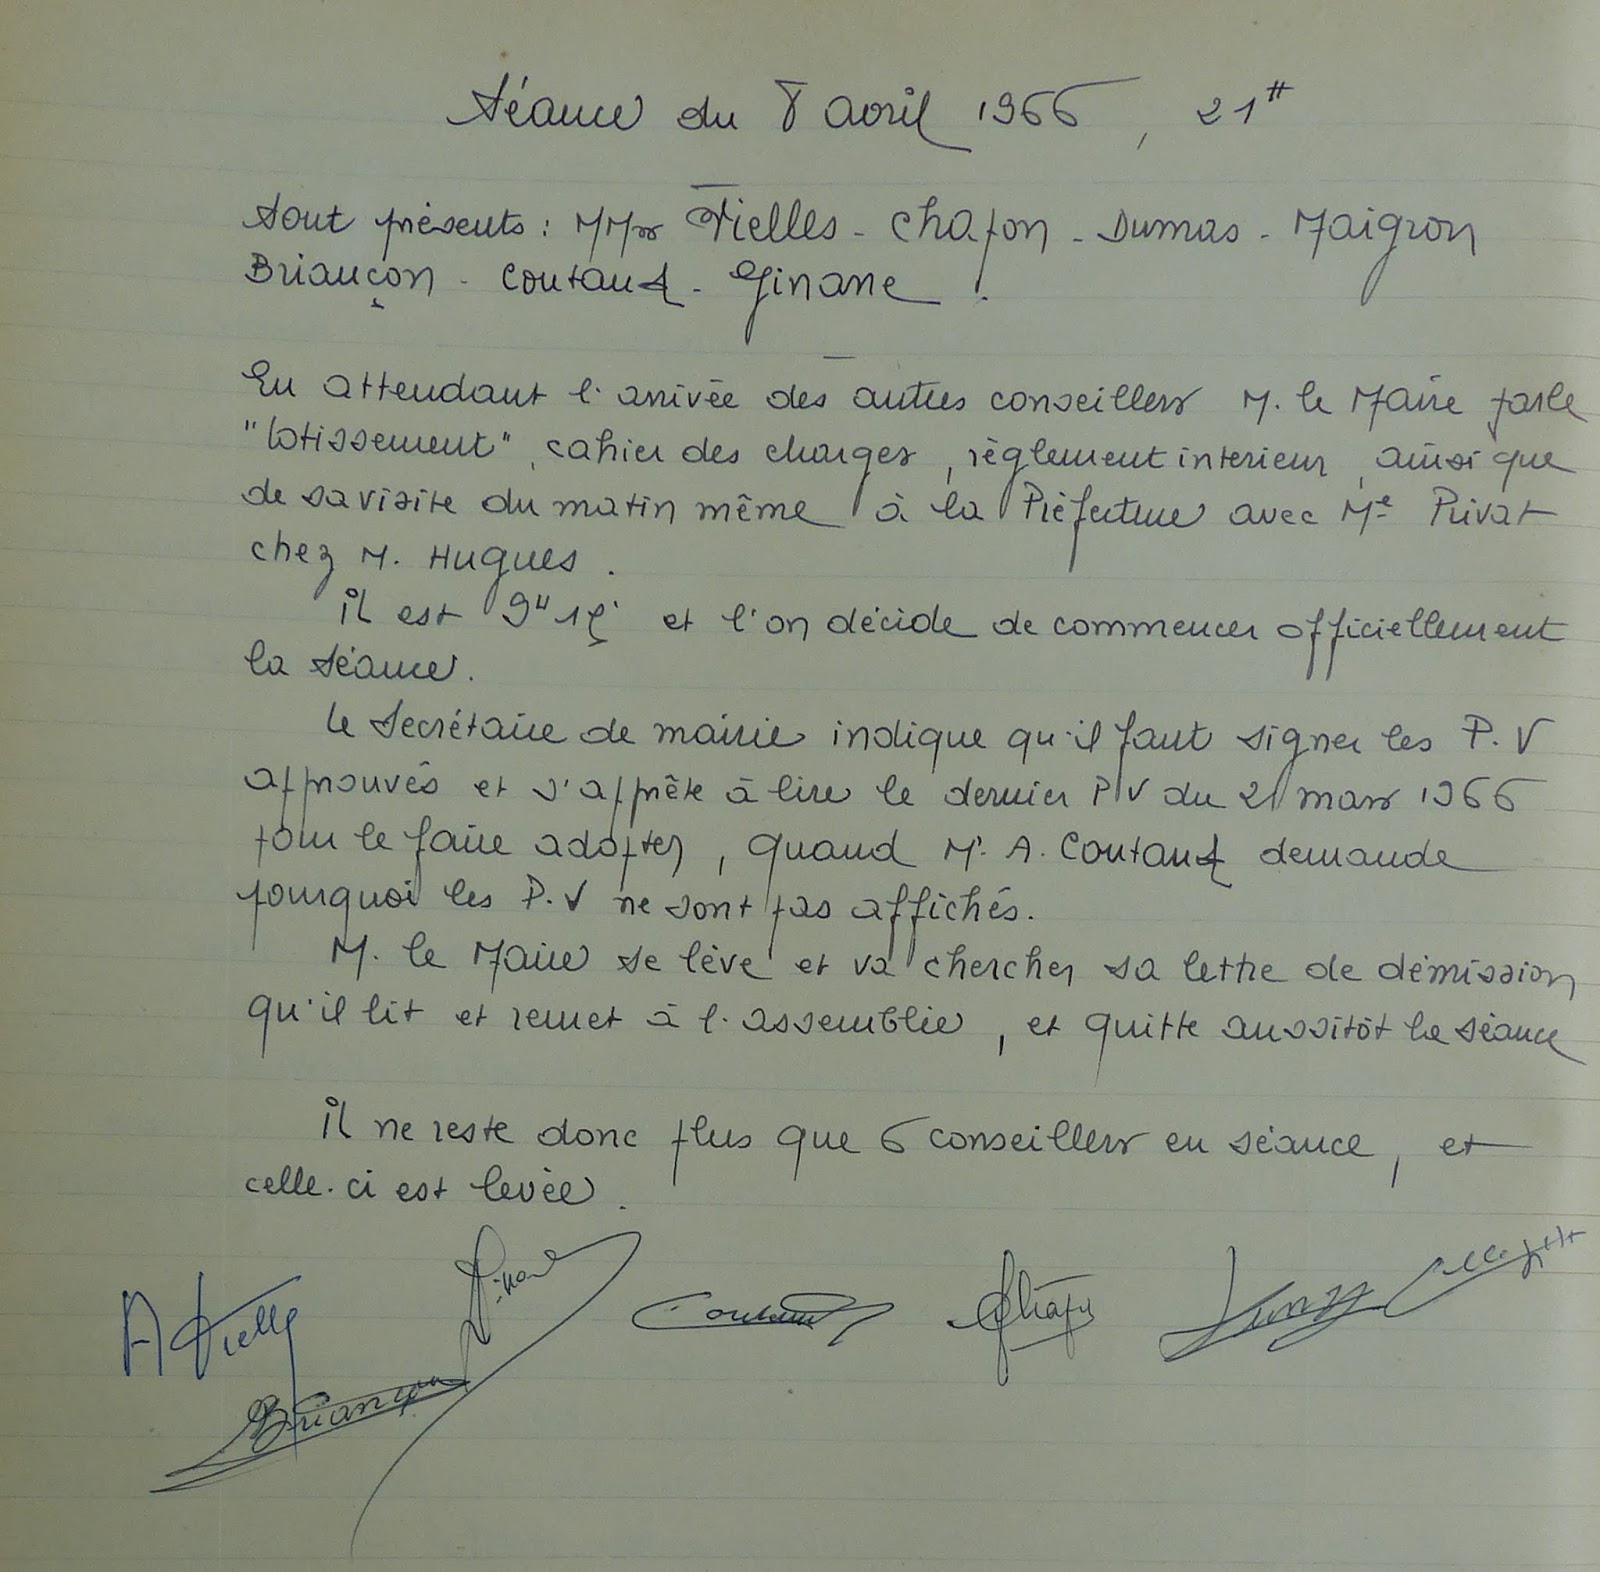 Séance du 8 avril 1966, 21H
Sont présents : MMrs Vielles - Chafon - Dumas - Maigron
Briançon - Coutaud - Ginane.
En attendant l'arrivée des autres conseillers M. le Maire parle
"lotissement", cahier des charges, règlement interieur, ainsi que
de sa visite du matin même à la Préfecture avec Me Privat
chez M. Hugues.
Il est 9H 15' et l'on décide de commencer officiellement
la séance.
Le Secrétaire de mairie indique qu'il faut signer les P.V
approuvés et s'apprête à lire le dernier PV du 21 mars 1966
pour le faire adopter, quand Mr. A. Coutaud demande
pourquoi les P.V ne sont pas affichés.
M. le Maire se lève et va chercher sa lettre de démission
qu'il lit et remet à l'assemblée, et quitte aussitôt la séance
Il ne reste donc plus que 6 conseillers en séance, et
celle-ci est levée.
A Vielle
Briançon